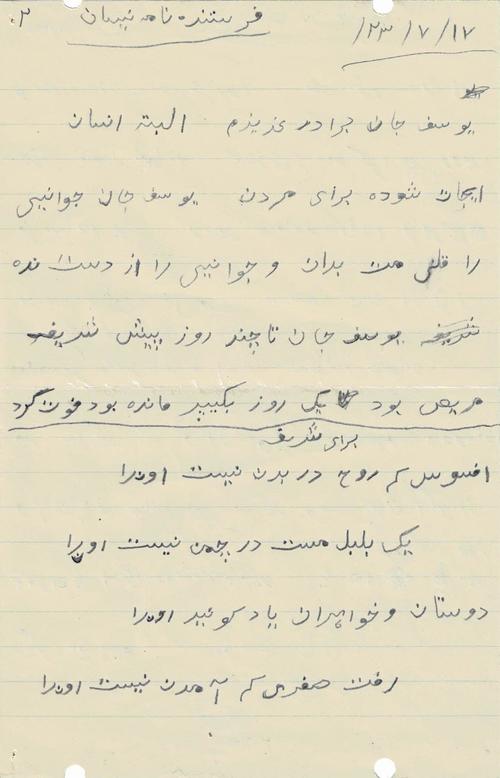 ۲ فرستنده نامه نیسان
۲۳/۷/۱۷/
یوسف جان برادر عزیزم البته انسان
ایجاد شوده برای مردن یوسف جان جوانیی
را قلی من بدان و جوانیی را از دست نده
یوسف جان تا چند روز پیش شریفه
مریض بود یک روز بکیپر مانده بود فوت کرد
برای شریفه
افسوس که روح در بدن نیست اورا
یک بلبل مست در چمن نیست اورا
دوستان و خواهران یاد کونید اورا
رفت صفری که آمدن نیست اورا